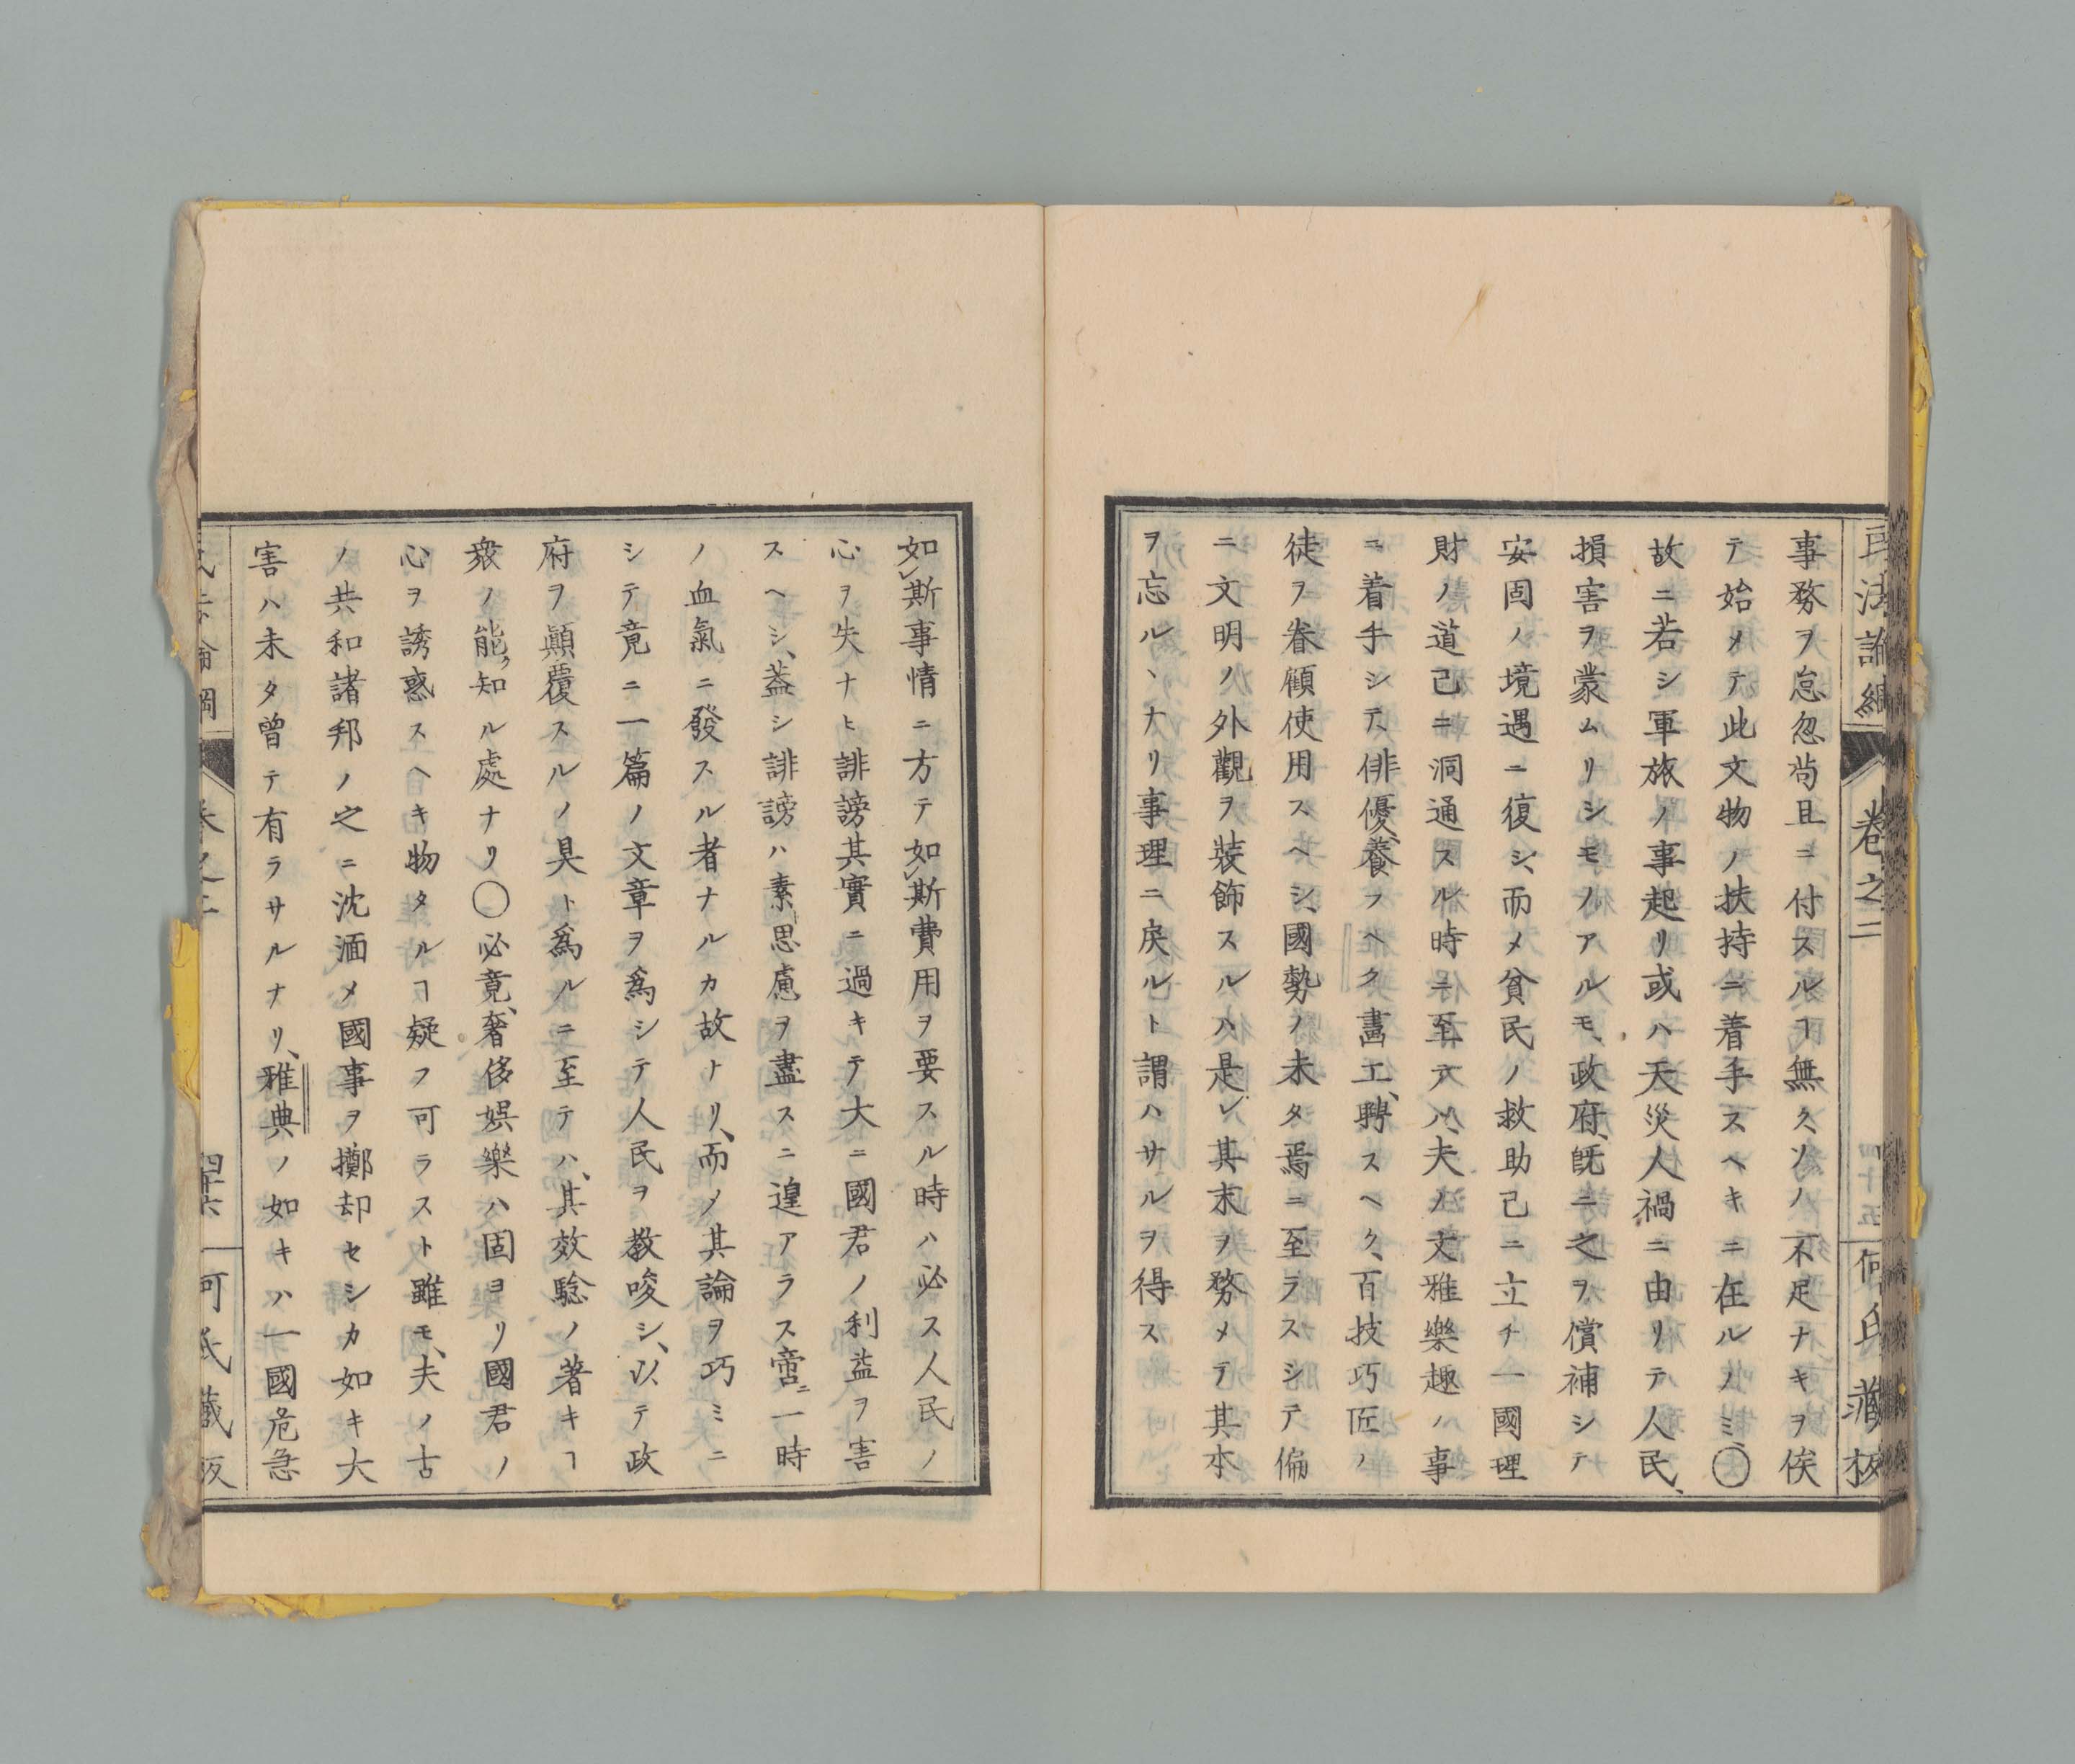 民法論綱 卷之二 何氏藏板
事務ヲ怠忽苟且ニ付スルヿ無ク、ソノ不足ナキヲ俟
テ始メテ此文物ノ扶持ニ着手スヘキニ在ルノミ、〇
故ニ若シ軍旅ノ事起リ或ハ天災人禍ニ由リテ人民、
損害ヲ蒙ムリシモノアルモ、政府、既ニ之ヲ償補シテ
安固ノ境遇ニ復シ、而メ貧民ノ救助已ニ立チ一國理
財ノ道已ニ洞通スル時ニ至テハ、夫ノ文雅樂趣ハ事
ニ着手シテ、俳優、養フヘク畫工、聘スヘク、百技巧匠ノ
徒ヲ眷顧使用スヘシ、國勢ノ未タ焉ニ至ラスシテ偏
ニ文明ノ外觀ヲ裝飾スルハ是レ其末ヲ務メテ其本
ヲ忘ルヽナリ事理ニ戾ルト謂ハサルヲ得ス
如レ斯事情ニ方テ如レ斯費用ヲ要スル時ハ必ス人民ノ
心ヲ失ナヒ誹謗其實ニ過キテ大ニ國君ノ利益ヲ害
スヘシ、葢シ誹謗ハ素ﾄ思慮ヲ盡スニ遑アラス啻ニ一時
ノ血氣ニ發スル者ナルカ故ナリ、而メ其論ヲ巧ミニ
シテ竟ニ一篇ノ文章ヲ爲シテ人民ヲ教唆シ、以テ政
府ヲ顚覆スルノ具ト爲ルニ至テハ、其效騐ノ著キヿ
衆ノ能ク知ル處ナリ〇必竟、奢侈娯樂ハ固ヨリ國君ノ
心ヲ誘惑スヘキ物タルヿ疑フ可ラスト雖モ、夫ノ古
ノ共和諸邦ノ之ニ沈湎メ國事ヲ擲却セシカ如キ大
害ハ未タ曾テ有ラサルナリ、雅典ノ如キハ一國危急
卷之二 四十六 何氏藏板